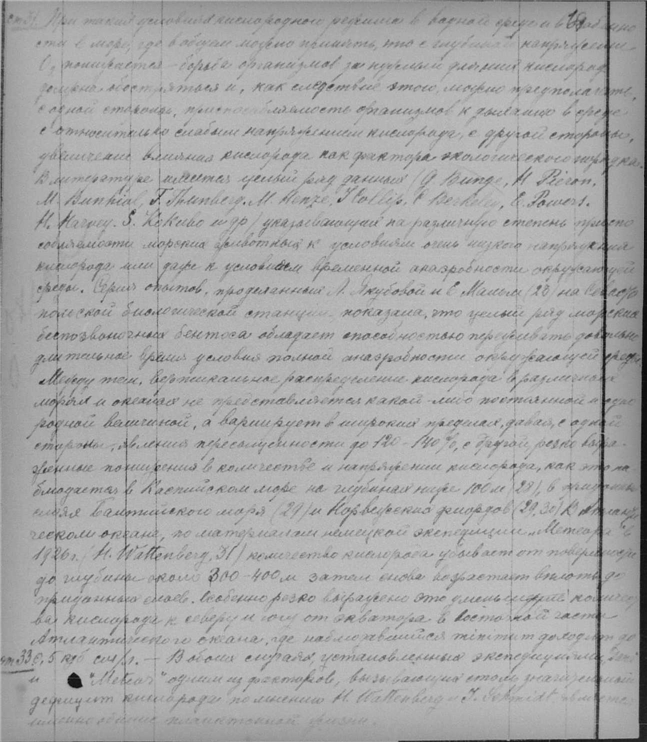 ст. 31 При таких условиях кислородного режима в водной среде и в особенно
сти в море, где в общем можно принять, что с глубиной напряжение
O₂ понижается – борьба организмов за нужный для них кислород
должна обостряться и, как следствие этого, можно предполагать,
с одной стороны, приспособляемость организмов к дыханию в среде
с относительно слабым напряжением кислорода, с другой стороны,
увеличение влияния кислорода как фактора экологического порядка.
В литературе имеется целый ряд данных (G. Bunge, H. Pieron,
M. Henze, J. Collip, C. Berkeley, E. Powers,
H. Harvey, S. Kokubo и др.) указывающих на различную степень приспо
собляемости морских животных к условиям очень низкого напряжения
кислорода или даже к условиям временной анаэробности окружающей
среды. Серия опытов, проделанных Л. Якубовой и Е. Мальм (28) на Севасто
польской биологической станции, показала, что целый ряд морских
беспозвоночных бентоса обладает способностью переживать довольно
длительное время условия полной анаэробности окружающей среды.
Между тем, вертикальное распределение кислорода в различных
морях и океанах не представляется какой-либо постоянной и одно
родной величиной, а варьирует в широких пределах, давая, с одной
стороны, явления пересыщенности до 120–140%, с другой, резко выра-
женные понижения в количестве и напряжении кислорода, как это на
блюдается в Каспийском море на глубинах ниже 100 м (28), в придонных
слоях Балтийского моря (29) и Норвежских фиордов (29, 30). В Атланти
ческом океане, по материалам немецкой экспедиции „Метеора" в
1926 г. (H. Wattenberg, 31) количество кислорода убывает от поверхности
до глубины около 300–400 м затем снова возрастает вплоть до
придонных слоев. Особенно резко выражено это уменьшение количест
ва кислорода к северу и югу от экватора в восточной части
Атлантического океана, где наблюдавшийся minimum доходит до
ст. 33 0,5 куб. см/л. – В обоих случаях установленных экспедициями
и „Meteor" одним из факторов, вызывающих столь значительный
дефицит кислорода по мнению H. Wattenberg и J. Schmidt является
именно обилие планктонной жизни.